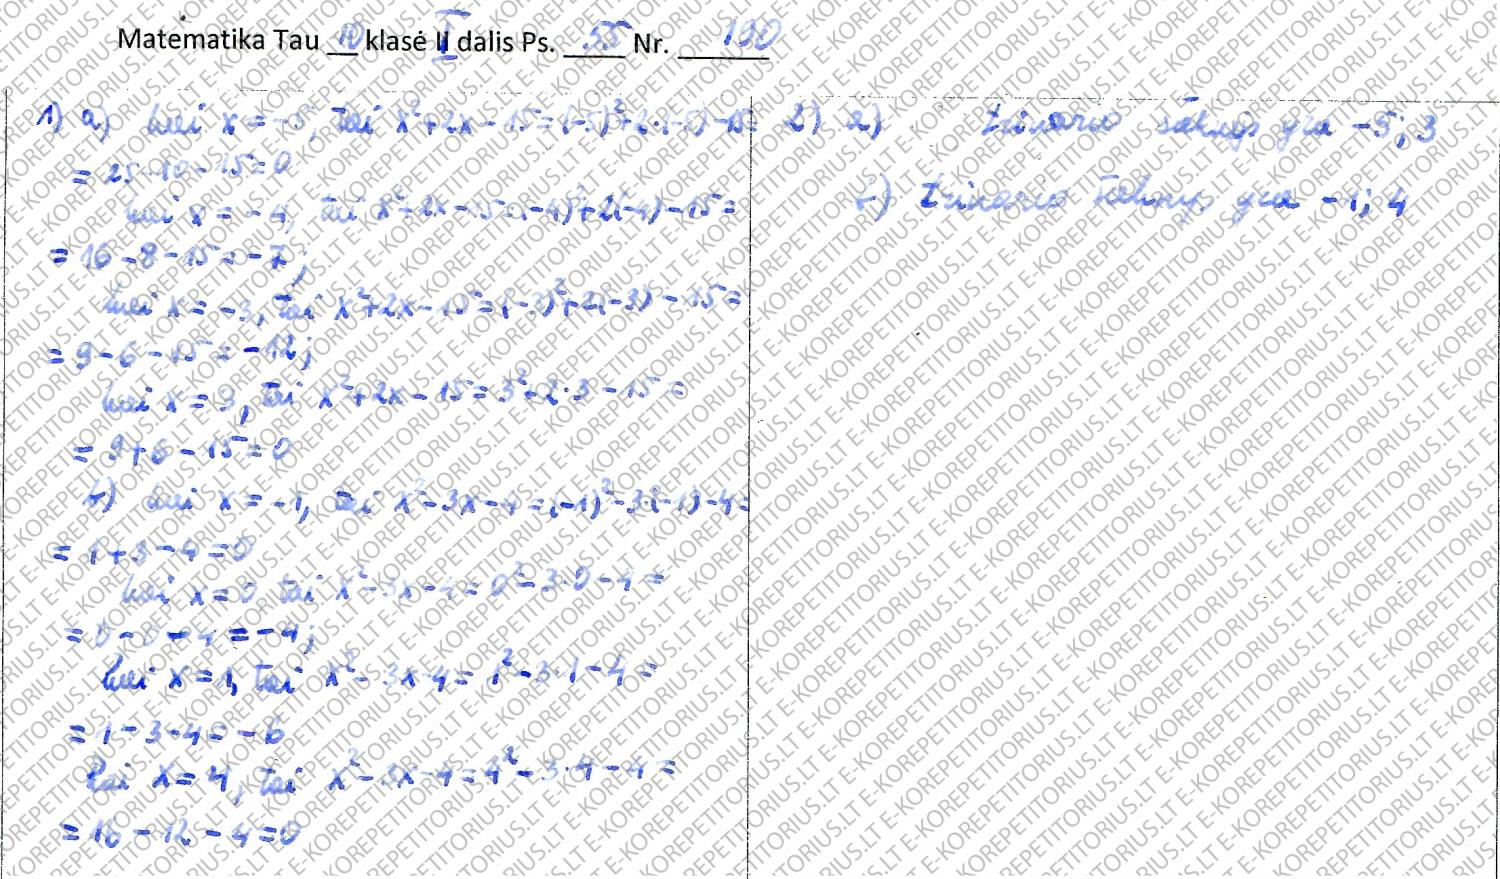 Matematika Tau 10 klasė I dalis Ps. 55 Nr. 190
1) a) kai x = -5, tai x²+2x-15=(-5)²+2·(-5)-15=
= 25-10-15=0
kai x = -4, tai x²+2x-15=(-4)²+2(-4)-15=
= 16-8-15=-7;
kai x = -3, tai x²+2x-15=(-3)²+2(-3)-15=
= 9-6-15=-12;
kai x = 3, tai x²+2x-15=3²+2·3-15=
= 9+6-15=0
b) kai x = -1, tai x²-3x-4=(-1)²-3·(-1)-4=
= 1+3-4=0
kai x=0 tai x²-3x-4=0²-3·0-4=
= 0-0-4=-4;
kai x=1, tai x²-3x-4=1²-3·1-4=
= 1-3-4=-6
kai x=4, tai x²-3x-4=4²-3·4-4=
= 16-12-4=0
2) a) trinario šaknys yra -5; 3
b) trinario šaknys yra -1; 4
E-KOREPETITORIUS.LT